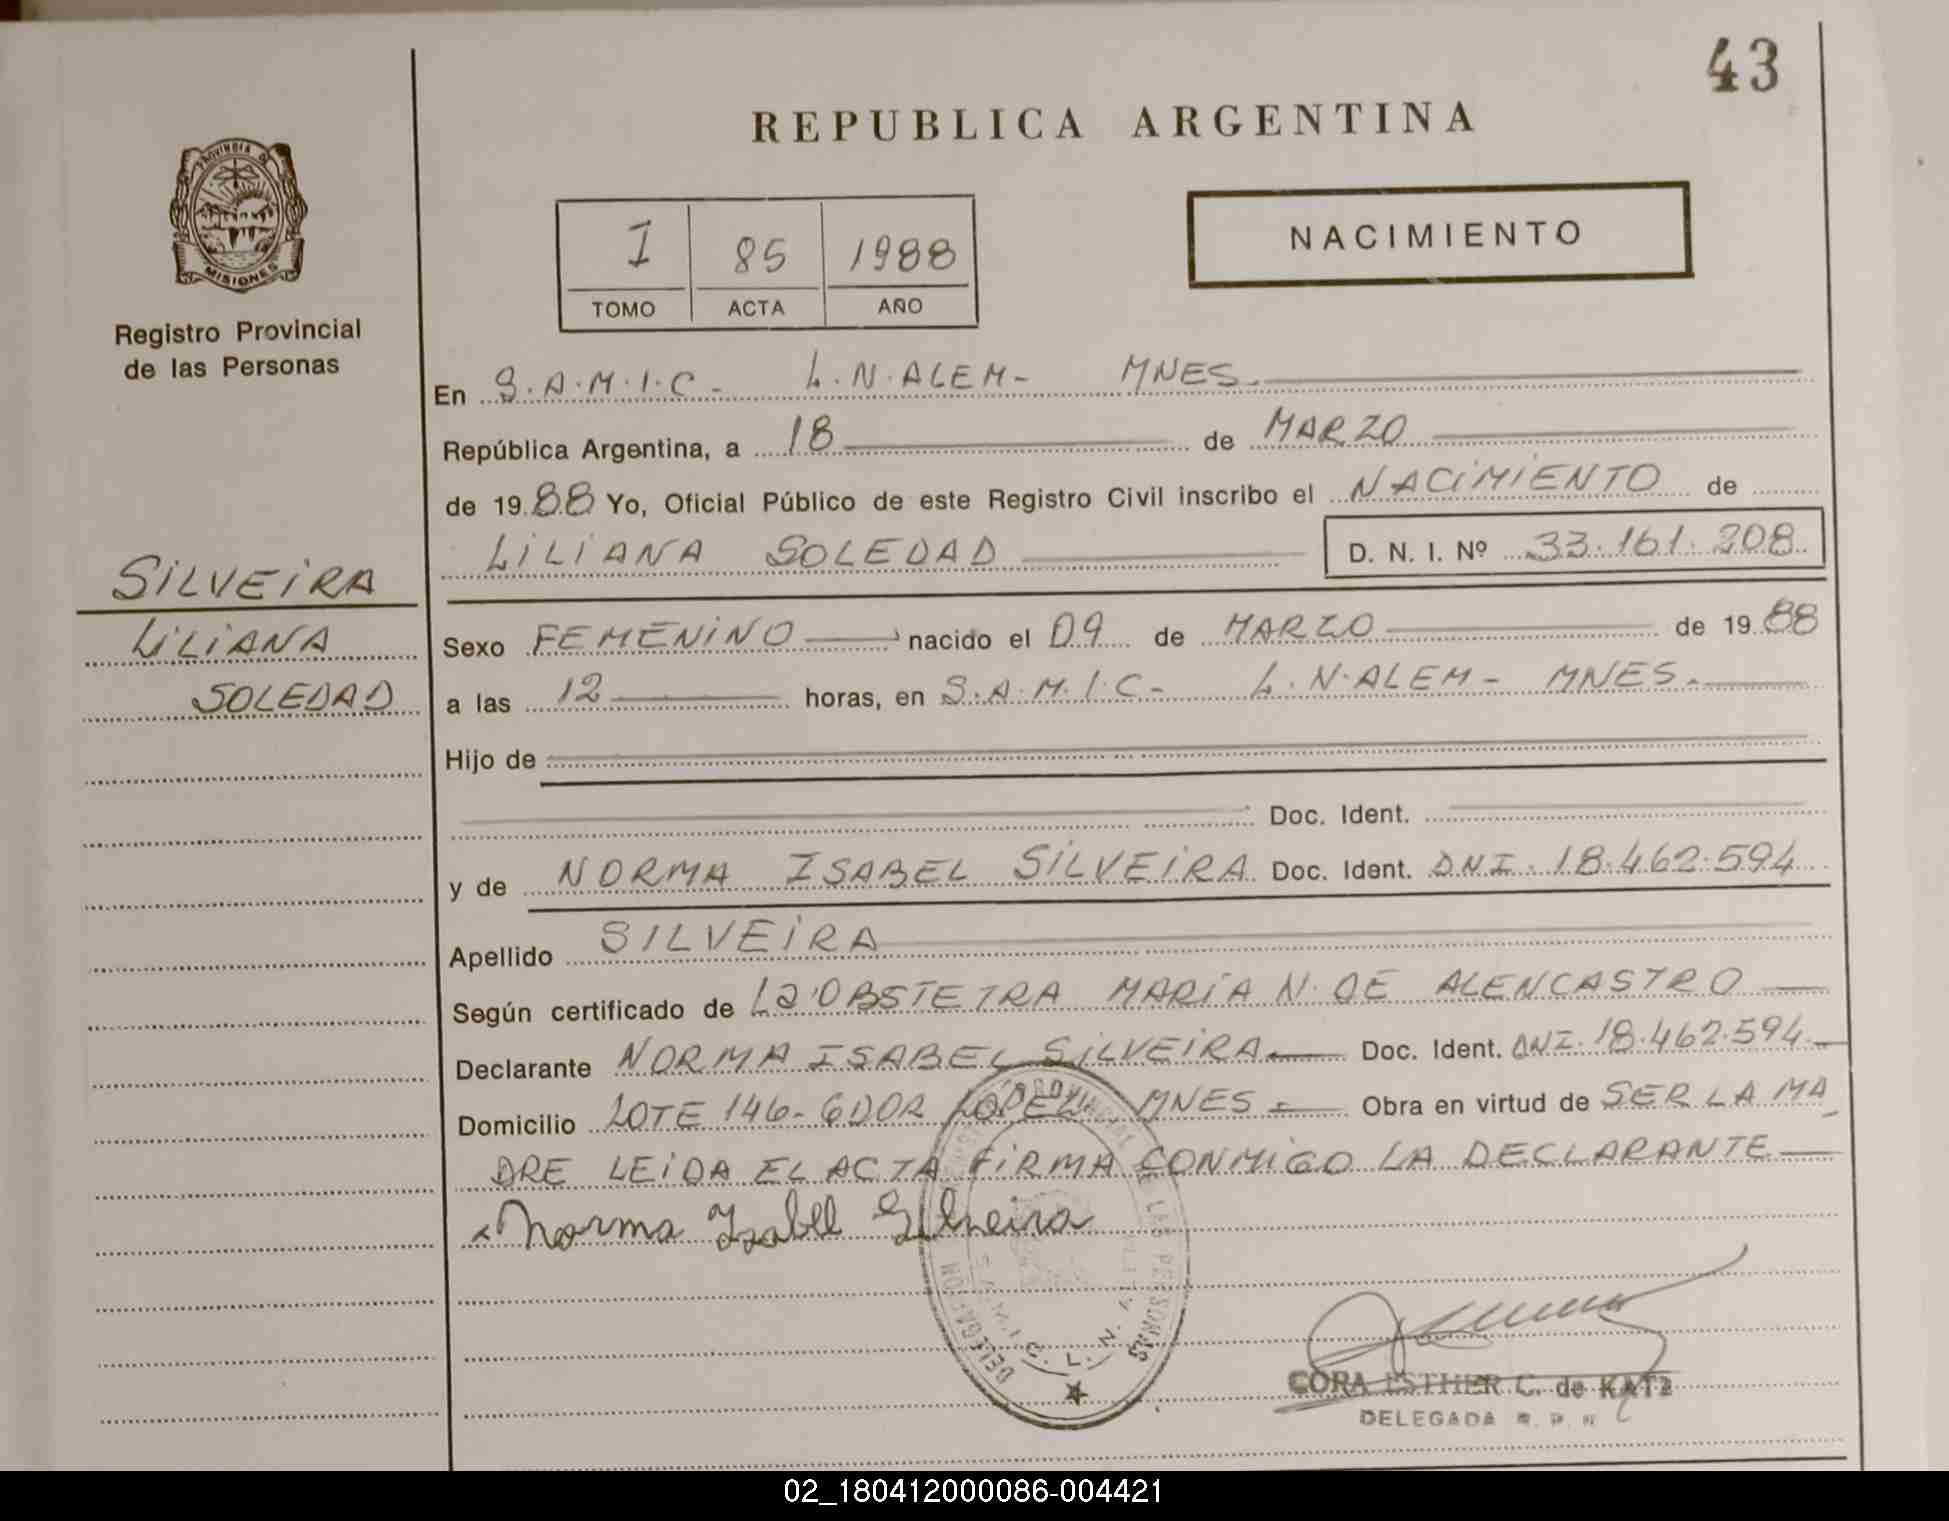 43
REPUBLICA ARGENTINA
PROVINCIA DE
MISIONES
Registro Provincial
de las Personas
I 85 1988
TOMO ACTA AÑO
NACIMIENTO
En S.A.M.I.C- L.N.ALEM- MNES.
República Argentina, a 18 de MARZO
de 1988 Yo, Oficial Público de este Registro Civil inscribo el NACIMIENTO de
LILIANA SOLEDAD D. N. I. Nº 33.161.208
SILVEIRA
LILIANA
SOLEDAD
Sexo FEMENINO nacido el 09 de MARZO de 1988
a las 12 horas, en S.A.M.I.C- L.N.ALEM- MNES.
Hijo de
Doc. Ident.
y de NORMA ISABEL SILVEIRA Doc. Ident. DNI. 18.462.594
Apellido SILVEIRA
Según certificado de La OBSTETRA MARÍA N. DE ALENCASTRO
Declarante NORMA ISABEL SILVEIRA Doc. Ident. DNI. 18.462.594
Domicilio LOTE 146- GDOR LOPEZ- MNES - Obra en virtud de SER LA MA
DRE LEIDA EL ACTA FIRMA CONMIGO LA DECLARANTE
Norma Izabel Silveira
DE LAS PERSONAS
DELEGACION
CORA ESTHER C. de KATZ
DELEGADA R. P. P.
02_180412000086-004421